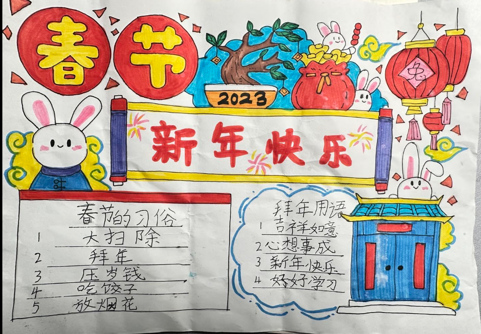 春节
2023
新年快乐
春节的习俗
1 大扫除
2 拜年
3 压岁钱
4 吃饺子
5 放烟花
拜年用语
1 吉祥如意
2 心想事成
3 新年快乐
4 好好学习